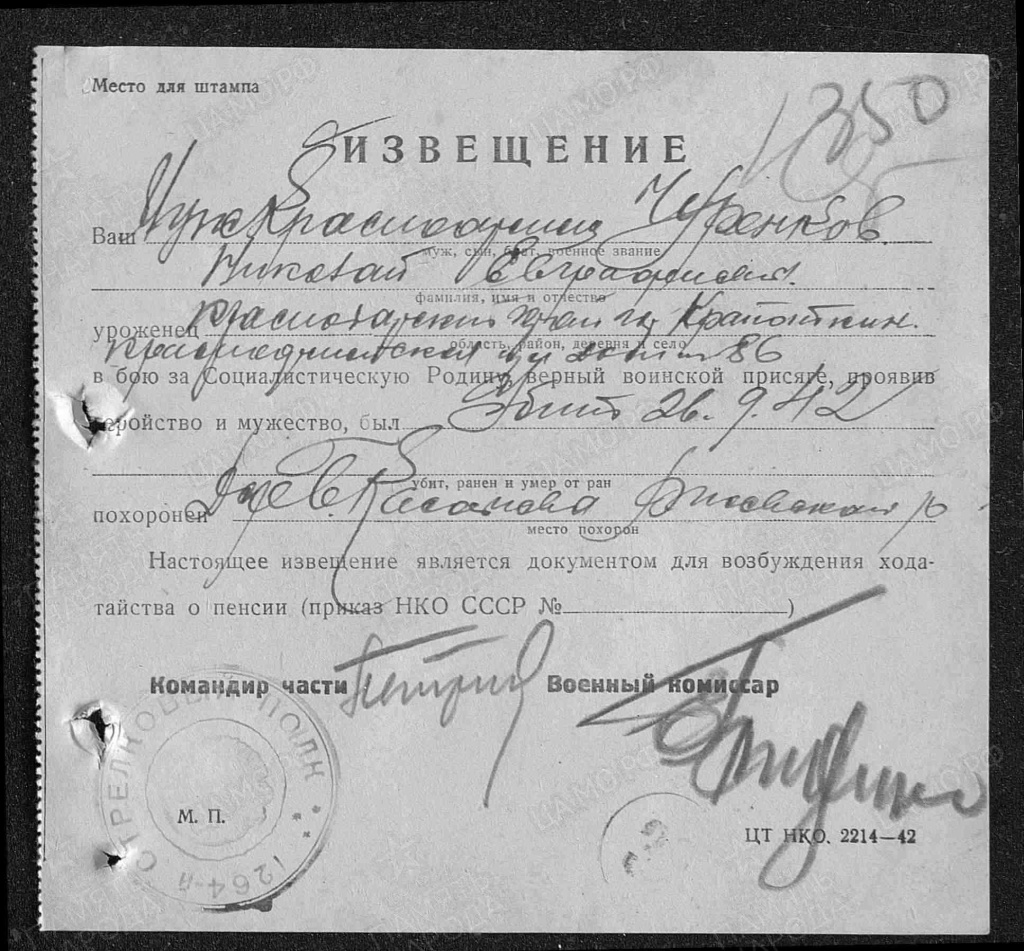 Место для штампа
1350
ИЗВЕЩЕНИЕ
Ваш муж Красноармеец
муж, сын, брат, военное звание
Николай
фамилия, имя и отчество
уроженец Краснодарский край
область, район, деревня и село
Красноармейская ул дом № 86
в бою за Социалистическую Родину, верный воинской присяге, проявив
геройство и мужество, был Убит 26.9.42
убит, ранен и умер от ран
похоронен Дер.
место похорон
Настоящее извещение является документом для возбуждения хода-
тайства о пенсии (приказ НКО СССР № )
Командир части Военный комиссар
СТРЕЛКОВЫЙ ПОЛК
1264-й
М. П.
ЦТ НКО. 2214—42